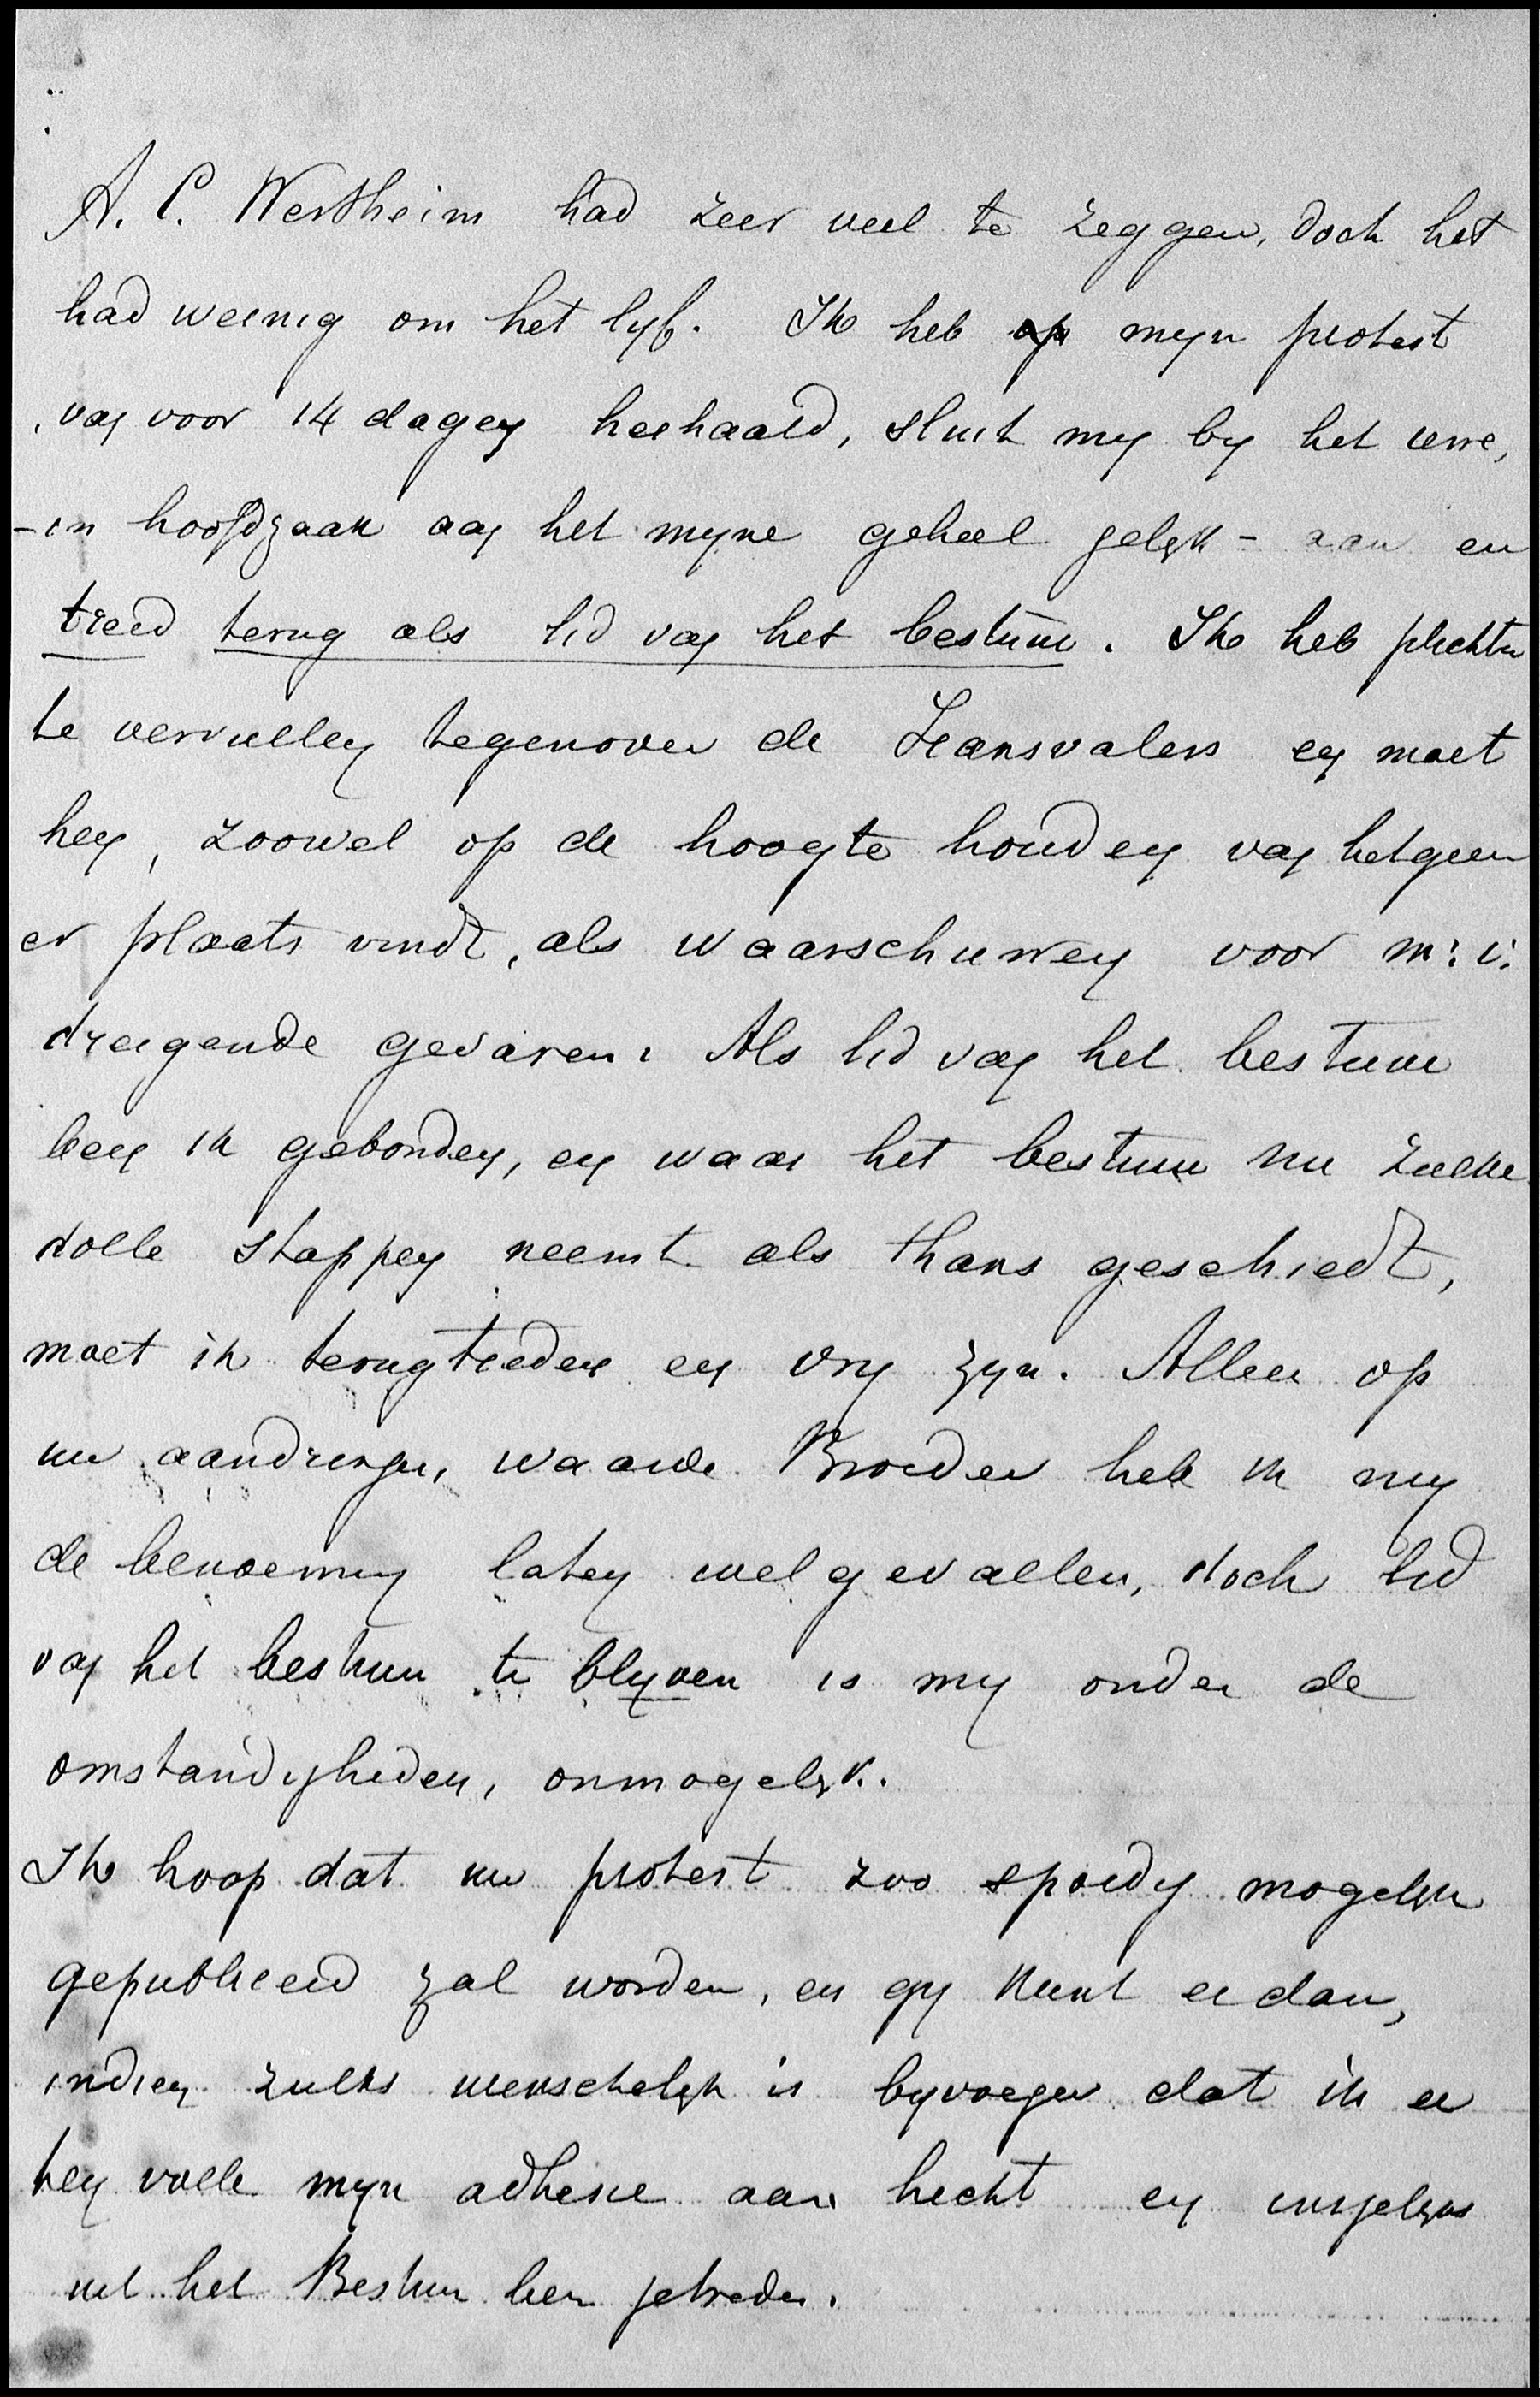 A. C. Wertheim had zeer veel te zeggen, doch het
had weinig om het lyf. Ik heb op myn protest
van voor 14 dagen herhaald, sluit my by het uwe,
- in hoofdzaak aan het myne geheel gelyk - aan en
treed terug als lid van het bestuur. Ik heb plichten
te vervullen tegenover de Transvalers en moet
hen, zoowel op de hoogte houden van hetgeen
er plaats vindt, als waarschuwen voor m: i:
dreigende gevaren. Als lid van het bestuur
ben ik gebonden, en waar het bestuur nu zulke
dolle stappen neemt als thans geschiedt,
moet ik terugtreden en vry zyn. Alleen op
uw aandringen, waarde Broeder heb ik my
de benoeming laten welgevallen, doch lid
van het bestuur te blyven is my onder de
omstandigheden, onmogelyk.
Ik hoop dat uw protest zoo spoedig mogelyk
gepubliceerd zal worden, en gy kunt er dan,
indien zulks wenschelyk is byvoegen dat ik er
ten volle myn adhesie aan hecht en insgelyks
uit het Bestuur ben getreden.